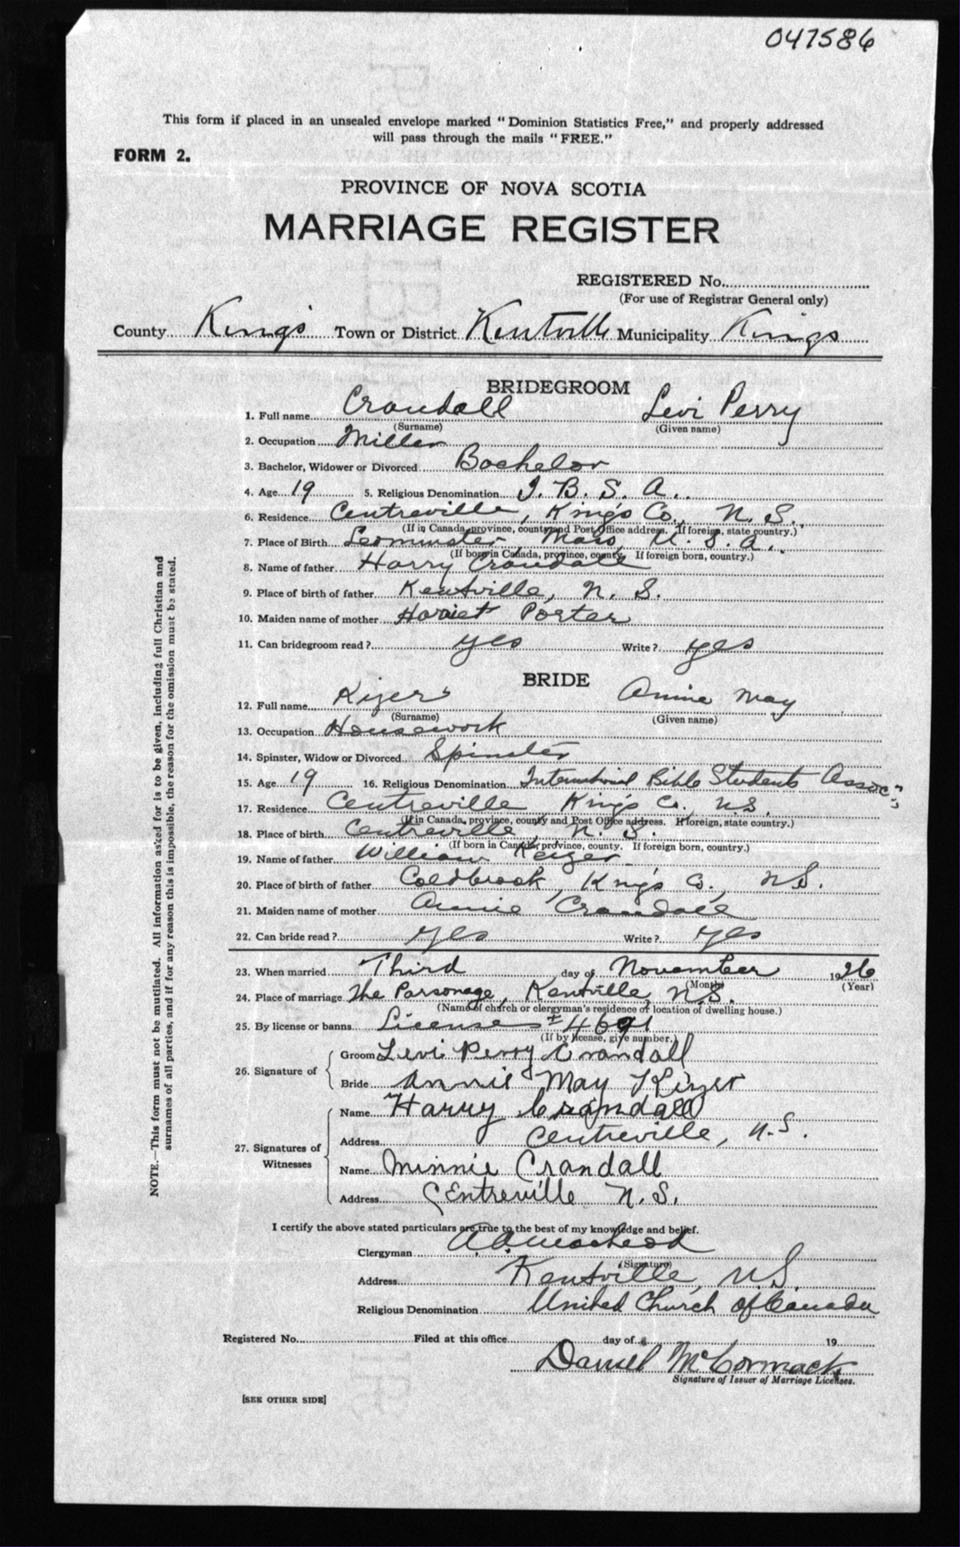 047586
This form if placed in an unsealed envelope marked "Dominion Statistics Free," and properly addressed
will pass through the mails "FREE."
FORM 2.
PROVINCE OF NOVA SCOTIA
MARRIAGE REGISTER
REGISTERED No.
(For use of Registrar General only)
County Kings Town or District Kentville Municipality Kings
BRIDEGROOM
1. Full name Crandall Levi Perry
(Surname) (Given name)
2. Occupation Miller
3. Bachelor, Widower or Divorced Bachelor
4. Age 19 5. Religious Denomination I. B. S. A.
6. Residence Centreville, King's Co., N. S.
(If in Canada, province, county and Post Office address. If foreign, state country.)
7. Place of Birth Leominster Mass, U. S. A.
(If born in Canada, province, county. If foreign born, country.)
8. Name of father Harry Crandall
9. Place of birth of father Kentville, N. S.
10. Maiden name of mother Harriet Porter
11. Can bridegroom read? yes Write? yes
BRIDE
12. Full name Kizer Annie May
(Surname) (Given name)
13. Occupation Housework
14. Spinster, Widow or Divorced Spinster
15. Age 19 16. Religious Denomination International Bible Students Assoc'
17. Residence Centreville King's Co, N.S.
(If in Canada, province, county and Post Office address. If foreign, state country.)
18. Place of birth Centreville, N. S.
(If born in Canada, province, county. If foreign born, country.)
19. Name of father William Keizer
20. Place of birth of father Coldbrook, King's Co., N.S.
21. Maiden name of mother Annie Crandall
22. Can bride read? yes Write? yes
23. When married Third day of November 1926
(Month) (Year)
24. Place of marriage The Parsonage, Kentville, N.S.
(Name of church or clergyman's residence or location of dwelling house.)
25. By license or banns License # 4691
(If by license, give number.)
26. Signature of Groom Levi Perry Crandall
Bride Annie May Kizer
27. Signatures of Witnesses
Name Harry Crandall
Address Centreville, N.S.
Name Minnie Crandall
Address Centreville N.S.
I certify the above stated particulars are true to the best of my knowledge and belief.
Clergyman
(Signature)
Address Kentville, N.S.
Religious Denomination United Church of Canada
Registered No. Filed at this office day of 19
Daniel McCormack
Signature of Issuer of Marriage Licenses.
[SEE OTHER SIDE]
NOTE.—This form must not be mutilated. All information asked for is to be given, including full Christian and
surnames of all parties, and if for any reason this is impossible, the reason for the omission must be stated.